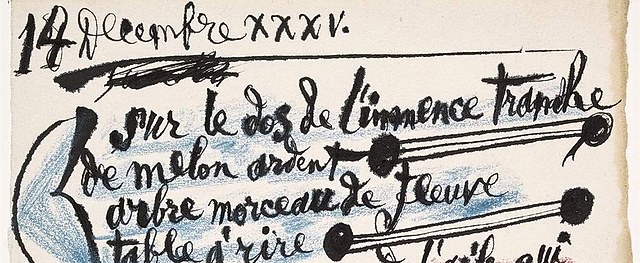 14 Decembre XXXV.
sur le dos de l'immence tranche
de melon ardent
arbre morceau de fleuve
table à rire
de l'aile qui